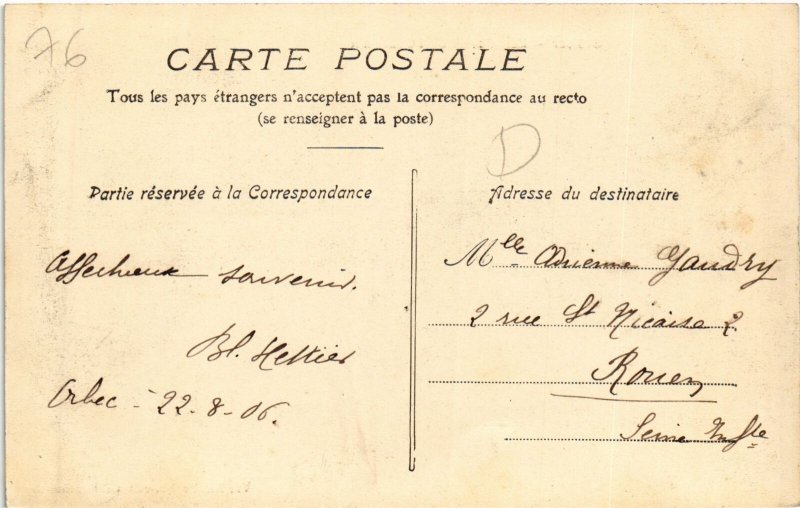 76
CARTE POSTALE
Tous les pays étrangers n'acceptent pas la correspondance au recto
(se renseigner à la poste)
D
Partie réservée à la Correspondance
Affectueux souvenir.
Bl. Hettier
Orbec - 22-8-06.
Adresse du destinataire
Mlle Adrienne Gaudry
2 rue St Nicaise 2
Rouen
Seine Infre